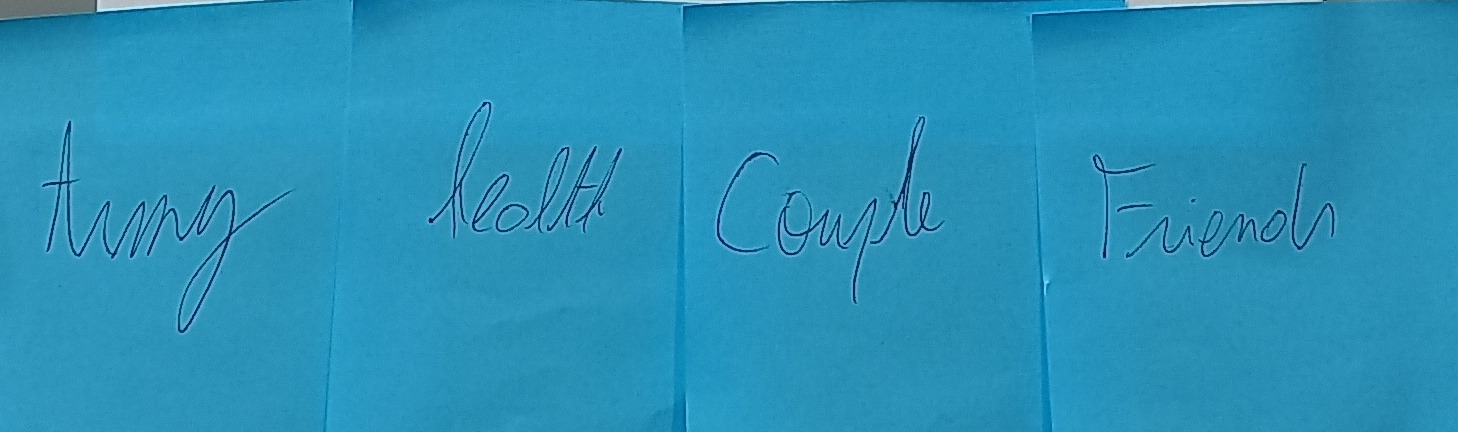 Army
health
Couple
Friends